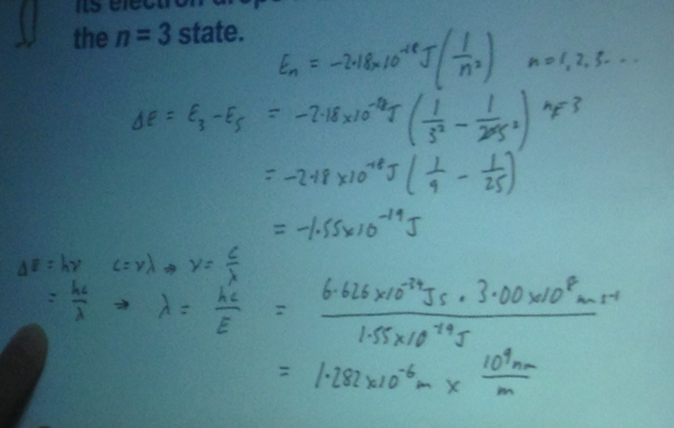 its electron drops
the n = 3 state.
Eₙ = -2.18x10⁻¹⁸J (1/n²) n=1,2,3...
ΔE = E₃ - E₅ = -2.18x10⁻¹⁸J (1/3² - 1/5²) n_F=3
= -2.18x10⁻¹⁸J (1/9 - 1/25)
= -1.55x10⁻¹⁹J
ΔE = hν c=νλ → ν = c/λ
= hc/λ → λ = hc/E = 6.626x10⁻³⁴Js . 3.00x10⁸ms⁻¹ / 1.55x10⁻¹⁹J
= 1.282x10⁻⁶m x 10⁹nm/m